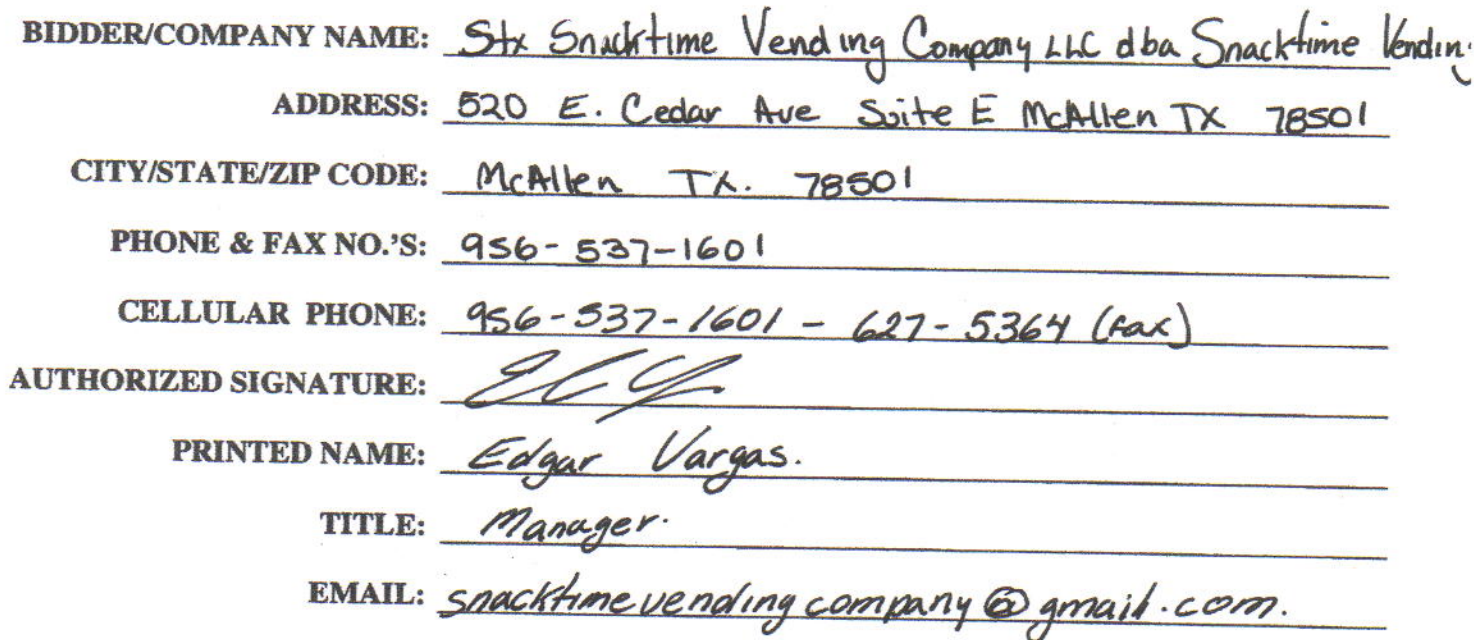 BIDDER/COMPANY NAME: Stx Snacktime Vending Company LLC dba Snacktime Vending
ADDRESS: 520 E. Cedar Ave Suite E McAllen TX 78501
CITY/STATE/ZIP CODE: McAllen TX. 78501
PHONE & FAX NO.'S: 956-537-1601
CELLULAR PHONE: 956-537-1601 - 627-5364 (fax)
AUTHORIZED SIGNATURE:
PRINTED NAME: Edgar Vargas.
TITLE: Manager.
EMAIL: snacktimevendingcompany@gmail.com.